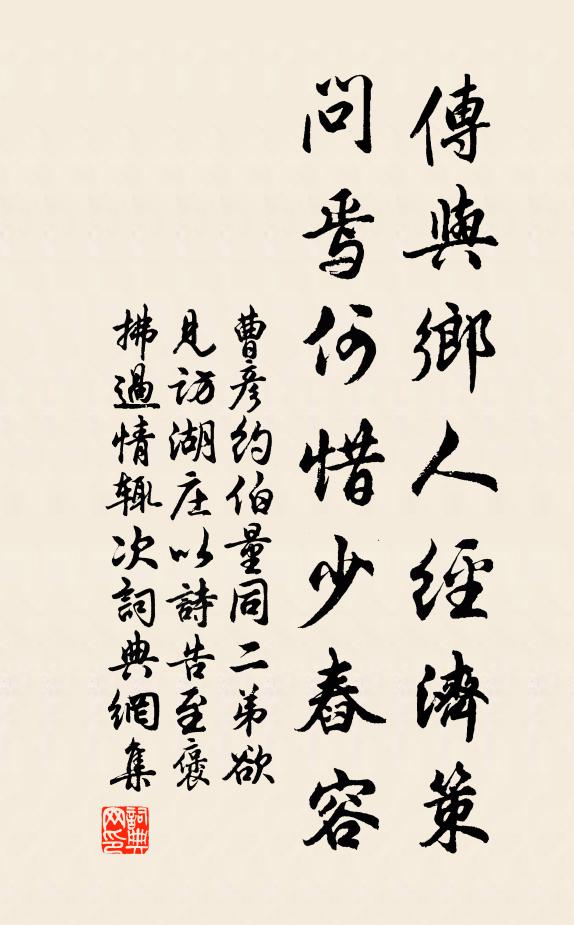 傳與鄉人經濟策
問焉何惜少舂容
曹彥約伯量同二弟欲
見訪湖庄以詩告至褒
拂過情輒次詞典網集
詞典
网印